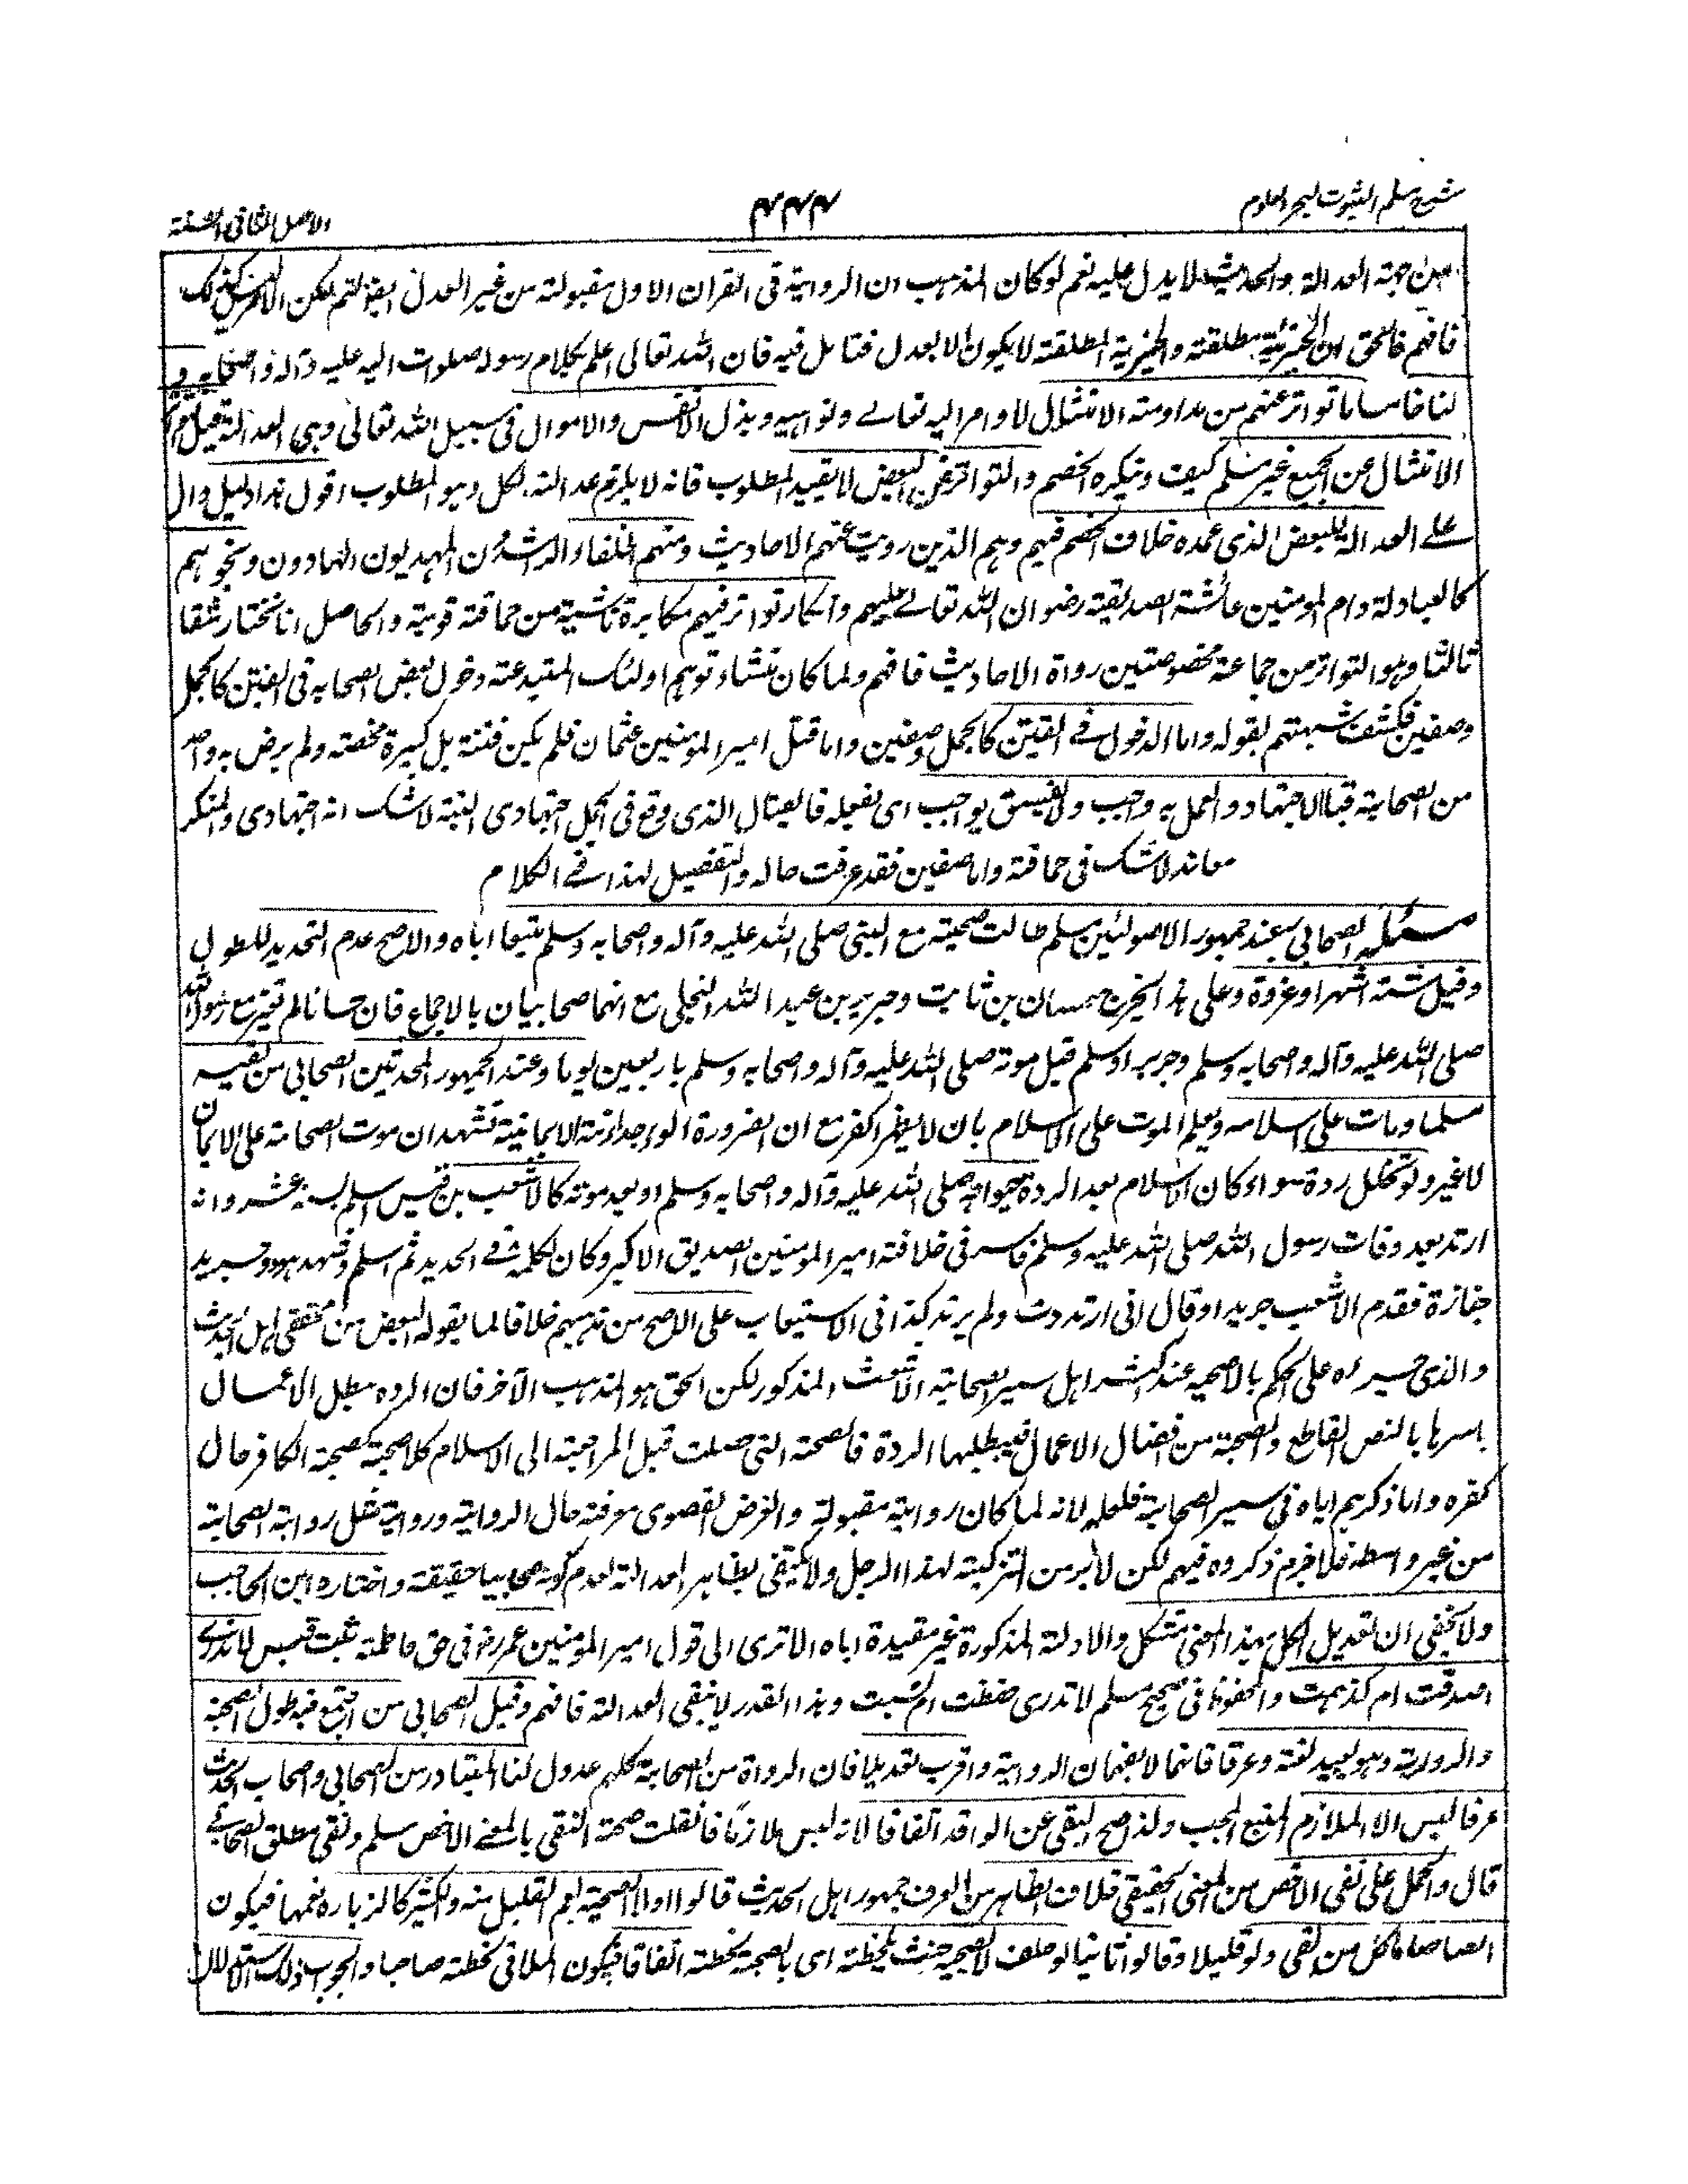 شرح مسلم الثبوت لبحر العلوم
۴۴۴
الاصل الثانی السنة
من جهة العدالة والحدیث لا یدل علیه نعم لو کان المذهب ان الروایة فی القرن الاول مقبولة من غیر العدل لکن الامر لیس کذلک
فافهم فالحق ان الخیریة مطلقة والخیریة المطلقة لا یکون الا بعدل فتامل فیه فان الله تعالی اعلم بکلام رسوله صلوات الیه علیه وآله واصحابه و
لنا خامسا ما تواتر عنهم من مداومة الامتثال لاوامر الیه تعالے ونواهیه وبذل الانفس والاموال فی سبیل الله تعالی وهی العدالة قیل
الامتثال عن الجمیع غیر مسلم کیف وینکره الخصم والتواتر عن البعض لا یفید المطلوب فانه لا یلزم عدالة الکل وهو المطلوب اقول هذا دلیل دال
علے العدالة للبعض الذی عمده خلاف الخصم فیهم وهم الذین رویت عنهم الاحادیث ومنهم الخلفاء الراشدون المهدیون الهادون ونحوهم
کالعبادلة وام المومنین عائشة الصدیقة رضوان الله تعالے علیهم وانکار تواتر فیهم مکابرة ناشیة من حماقة قویة والحاصل انا نختار شقا
ثالثا وهو التواتر من جماعة مخصوصین رواة الاحادیث فافهم ولما کان منشاء توهم اولئک المبتدعة دخول بعض الصحابه فی الفتن کالجمل
وصفین فکشف شبهتهم بقوله واما الدخول فے الفتن کالجمل وصفین واما قتل امیر المومنین عثمان فلم یکن فتنة بل کبیرة محضة ولم یرض به واحد
من الصحابة فبالاجتهاد والعمل به واجب ولا تفسیق بواجب ای بفعله فالقتال الذی وقع فی الجمل اجتهادی البتة لا شک انه اجتهادی والمنکر
معاند لا شک فی حماقة واما صفین فقد عرفت حاله والتفصیل لهذا فے الکلام
مسئله الصحابی عند جمهور الاصولیین مسلم طالت صحبته مع النبی صلی الله علیه وآله واصحابه وسلم متبعا ایاه والاصح عدم التحدید للطول
وقیل ستة اشهر او غزوة وعلی هذا یخرج حسان بن ثابت وجریر بن عبد الله البجلی مع انهما صحابیان بالاجماع فان حسانا لم یغز مع رسول الله
صلی الله علیه وآله واصحابه وسلم وجریرا اسلم قبل موته صلی الله علیه وآله واصحابه وسلم باربعین یوما وعند الجمهور المحدثین الصحابی من لقیه
مسلما ومات علی اسلامه ویعلم الموت علی الاسلام بان لا یظهر الکفر مع ان الضرورة الوجدانیة الایمانیة تشهد ان موت الصحابة علی الایمان
لا غیر ولو تخلل ردة سواء کان الاسلام بعد الردة حیوته صلی الله علیه وآله واصحابه وسلم او بعد موته کالاشعب بن قیس اسلم بسنة عشر وانه
ارتد بعد وفات رسول الله صلی الله علیه وسلم فاسر فی خلافة امیر المومنین الصدیق الاکبر وکان یکلمه فے الحدید ثم اسلم وشهد هو وجریر
جنازة فقدم الاشعب جریرا وقال انی ارتددت ولم یرتد کذا فی الاستیعاب علی الاصح من مذهبهم خلافا لما یقوله البعض من محققی اهل الحدیث
والذی جسراه علی الحکم بالاصحیه عند اکثر اهل سیر الصحابة الاشعث المذکور لکن الحق هو المذهب الآخر فان الرده مبطل الاعمال
باسرها بالنص القاطع والصحبة من افضل الاعمال فیبطلها الردة فالصحبة التی حصلت قبل المراجعة الی الاسلام کلا صحبة کصحبة الکافر حال
کفره واما ذکرهم ایاه فی سیر الصحابة فلعله لانه لما کان روایة مقبولة والغرض القصوی معرفة حال الروایة وروایة مثل روایة الصحابة
من غیر واسطة فلا جرم ذکروه فیهم لکن لا بد من التزکیة لهذا الرجل ولا یکتفی بظاهر العدالة لعدم کونه صحابیا حقیقة واختاره ابن الحاجب
ولا یخفی ان تعدیل الکل بهذا المعنی مشکل والادلة المذکورة غیر مفیدة ایاه الا تری الی قول امیر المومنین عمر رضی فی حق فاطمة بنت قیس لا ندری
اصدقت ام کذبت والمحفوظ فی صحیح مسلم لا ندری حفظت ام نسیت وهذا القدر لا ینفی العدالة فافهم وقیل الصحابی من اجتمع فیه طول الصحبة
والروایة وهو بعید لغة وعرفا فانهما لا یفهمان الروایة واقرب تعدیلا فان الرواة من الصحابة کلهم عدول لنا المتبادر من الصحابی وصاحب الحدیث
عرفا لیس الا الملازم المتبع المحب ولذا صح النفی عن الوافد اتفاقا لانه لیس ملازما فان قلت صحة النفی بالمعنے الاخص مسلم ونفی مطلق الصحابے
قال والحمل علی نفی الاخص من المعنی الحقیقی خلاف الظاهر من العرف جمهور اهل الحدیث قالوا اولا الصحبة یعم القلیل منه والکثیر کالزیاره یعمها فیکون
الصاحب لکل من لقی ولو قلیلا وقالوا ثانیا لو حلف لا یصحبه حنث بلحظة ای بالصحبة لحظة اتفاقا فیکون الملاقی لحظة صاحبا والجواب ذلک الاستدلال